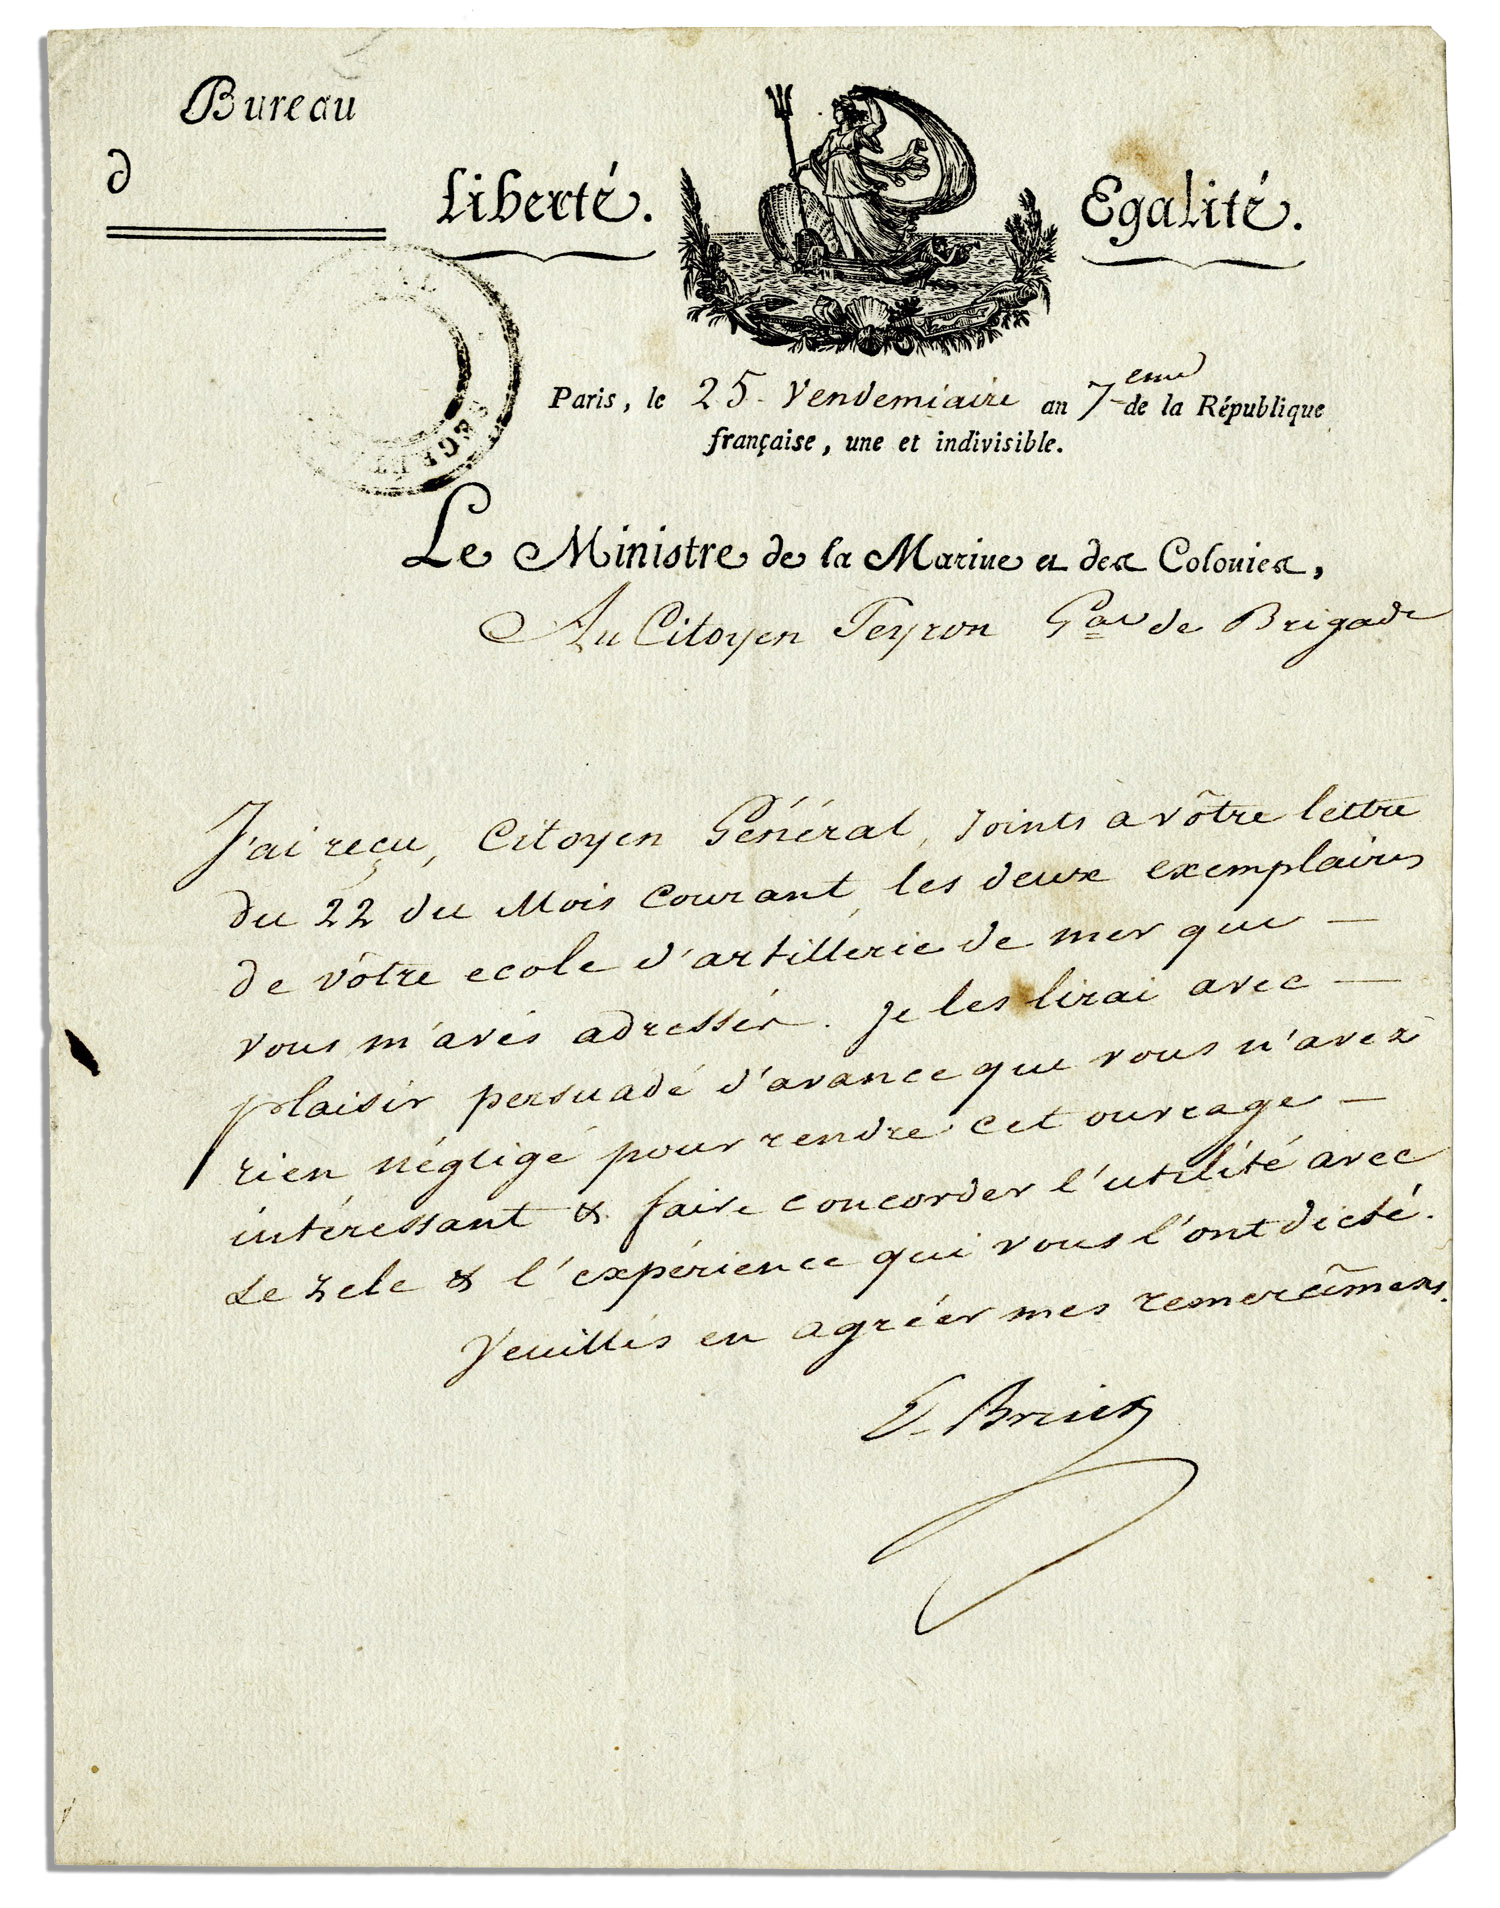 Bureau
d
Liberté. Egalité.
Paris, le 25 Vendemiaire an 7eme de la République
française, une et indivisible.
Le Ministre de la Marine et des Colonies,
Au Citoyen Teyron Gal de Brigade
J'ai reçu, Citoyen Général, Joints a vôtre lettre
du 22 du Mois Courant, les deux exemplaires
de vôtre ecole d'artillérie de mer que —
vous m'avés adressés. Je les lirai avec —
plaisir persuadé d'avance que vous n'avez
rien négligé pour rendre cet ouvrage —
intéressant & faire concorder l'utilité avec
le zele & l'expérience qui vous l'ont dicté.
Veuillés en agréer mes remercîmens.
E. Bruix